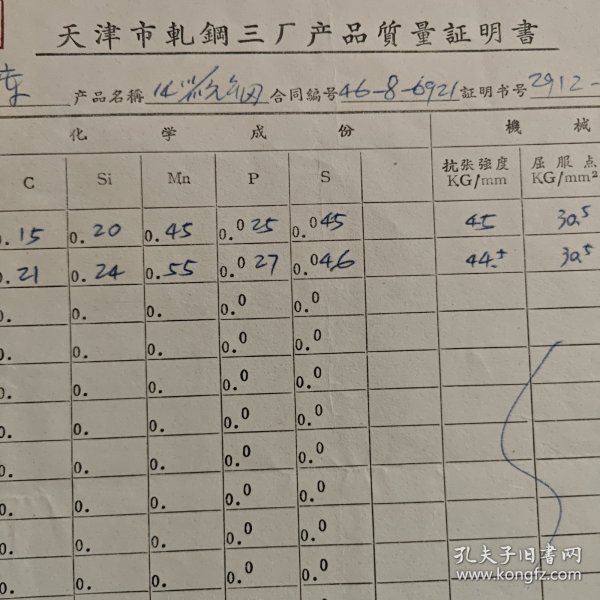 天津市軋鋼三厂产品質量証明書
产品名稱 合同編号46-8-6921 証明书号2912-
化 学 成 份 機 械
C Si Mn P S 抗张强度 屈服点
KG/mm KG/mm²
0.15 0.20 0.45 0.025 0.045 45 30.5
0.21 0.24 0.55 0.027 0.046 44.5 30.5
0. 0. 0. 0.0 0.0
0. 0. 0. 0.0 0.0
0. 0. 0. 0.0 0.0
0. 0. 0. 0.0 0.0
0. 0. 0. 0.0 0.0
0. 0. 0. 0.0 0.0
0. 0. 0. 0.0 0.0
孔夫子旧書网
www.kongfz.com